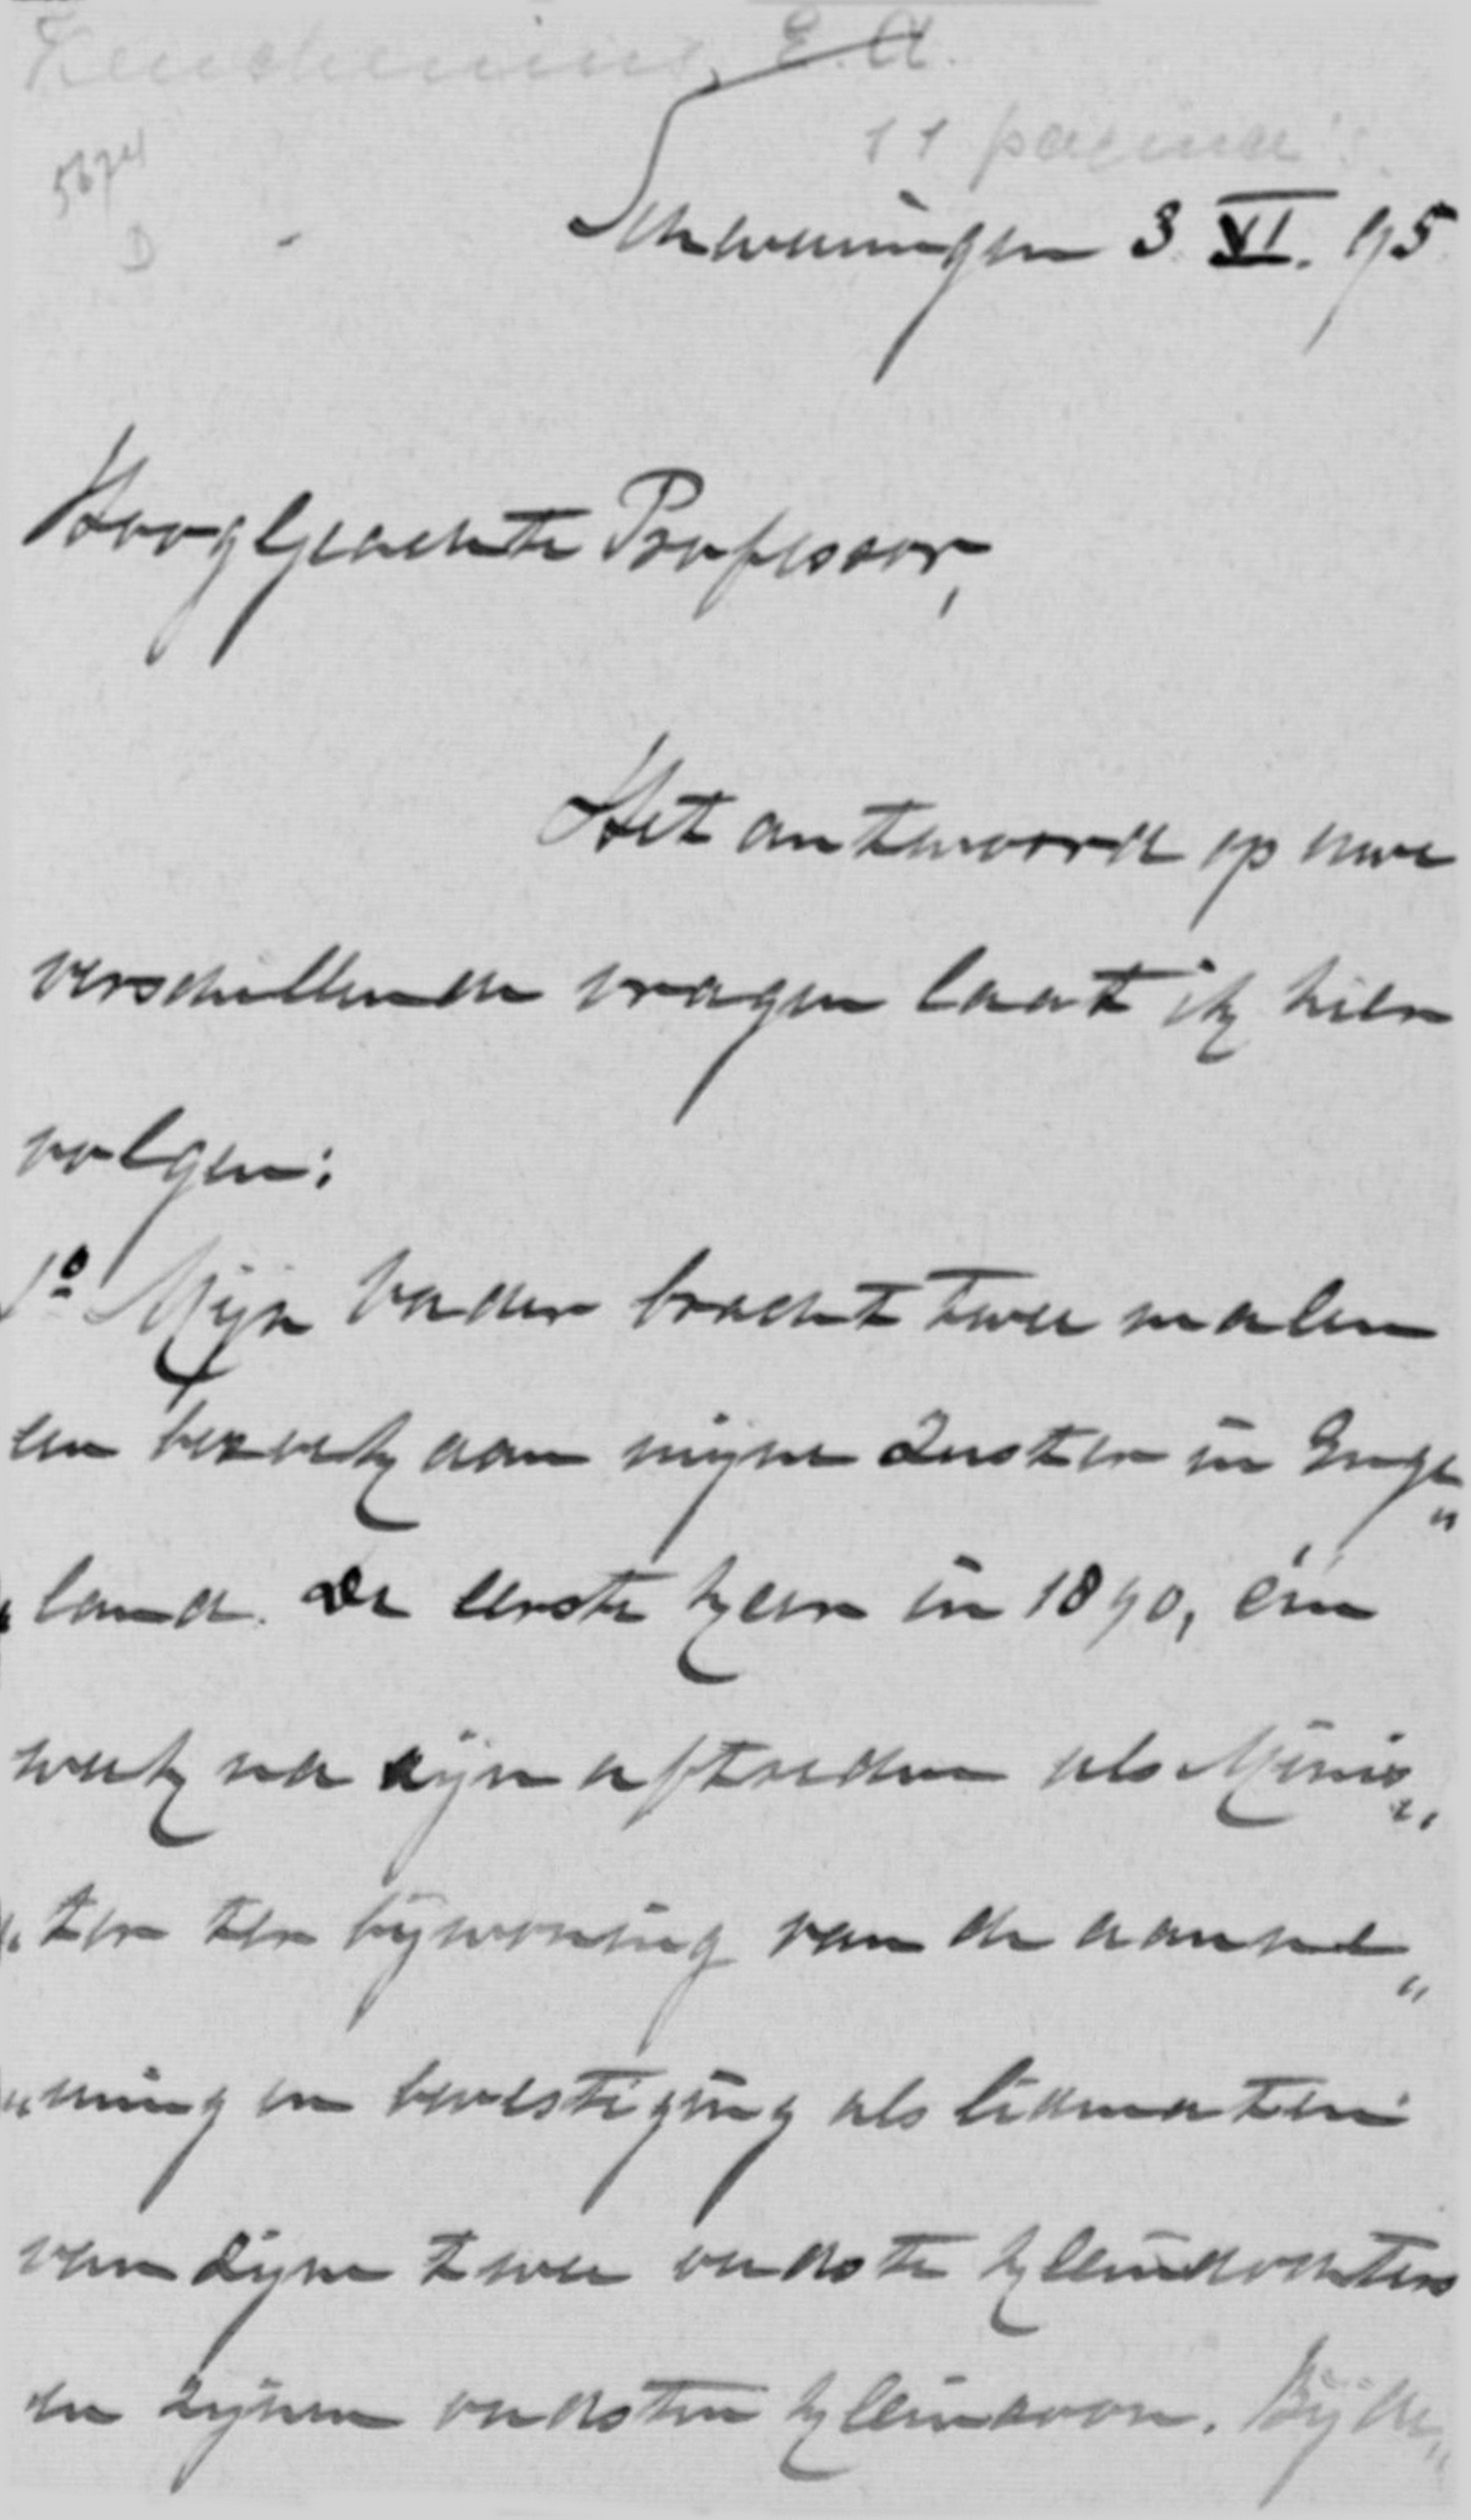 Keuchenius, E.A.
11 pagina's.
5674
D
Scheveningen 3 VI. 95
Hooggeachte Professor,
Het antwoord op uwe
verschillende vragen laat ik hier
volgen:
1º Mijn Vader bracht twee malen
een bezoek aan mijne Zuster in Enge„
„land. De eerste keer in 1890, één
week na zijn aftreden als Minis„
„ter ter bijwoning van de aanne„
„ming en bevestiging als lidmaten
van zijne twee oudste kleindochters
en zijnen oudsten kleinzoon. Bij de„